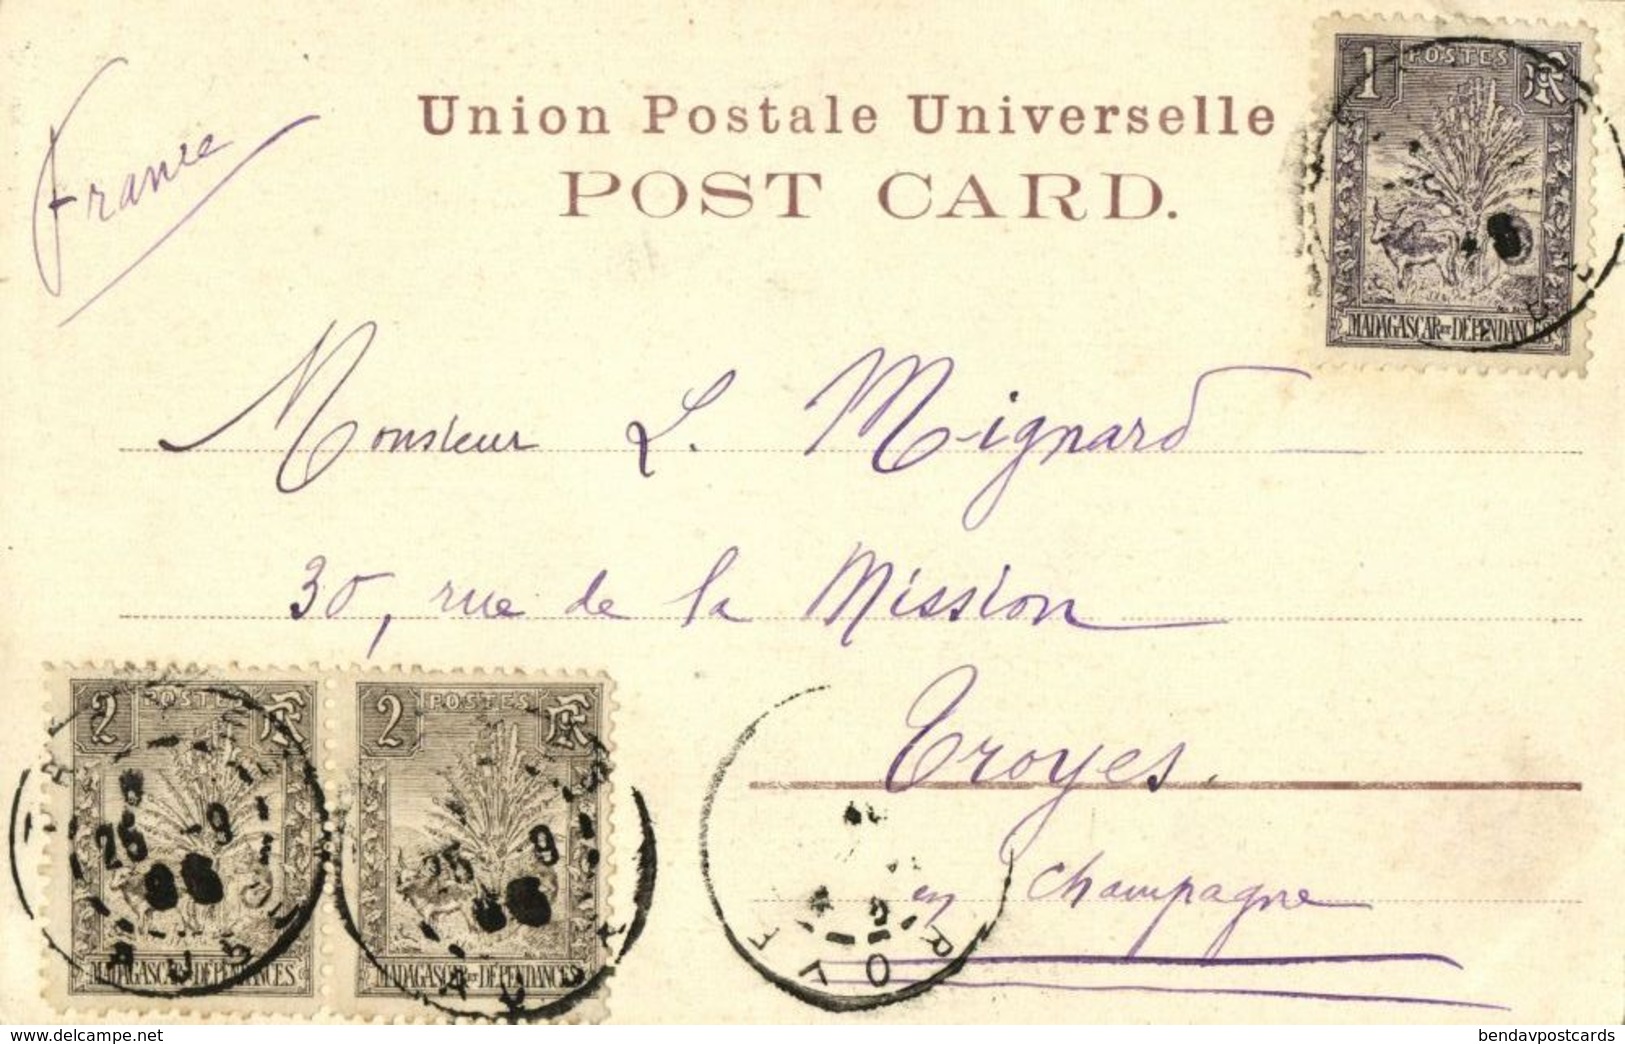 France
Union Postale Universelle
POST CARD.
1 POSTES RF
MADAGASCAR ET DÉPENDANCES
Monsieur L. Mignard
30, rue de la Mission
Troyes.
en Champagne
2 POSTES RF
MADAGASCAR ET DÉPENDANCES
25 -9
06
2 POSTES RF
MADAGASCAR ET DÉPENDANCES
25 9
06
www.delcampe.net
bendavpostcards